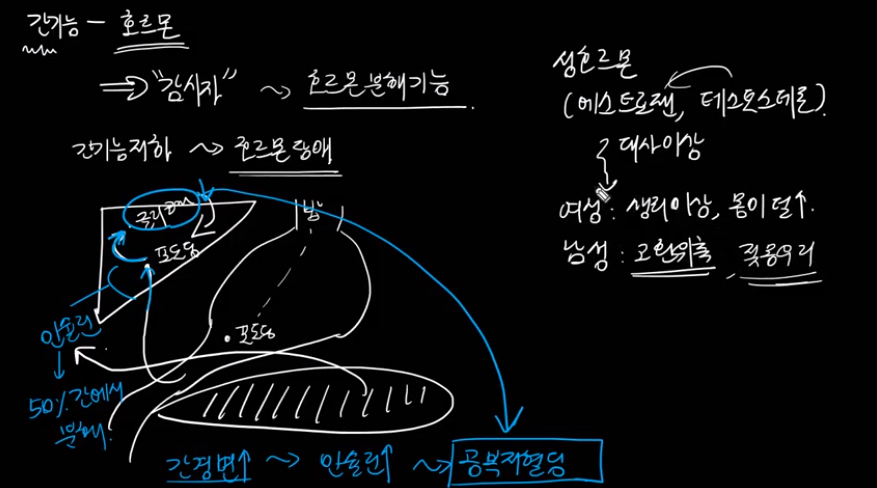 간기능 - 호르몬
⇒ "감시자" ~> 호르몬분해기능
간기능저하 ~> 호르몬장애
포도당
밥
• 포도당
인슐린
↓
50% 간에서
분해.
간경변↑ ~> 인슐린↑ ~> 공복저혈당
성호르몬
(에스트로겐, 테스토스테론)
대사이상
여성 : 생리이상, 몸이털↑.
남성 : 고환위축, 젖몽우리